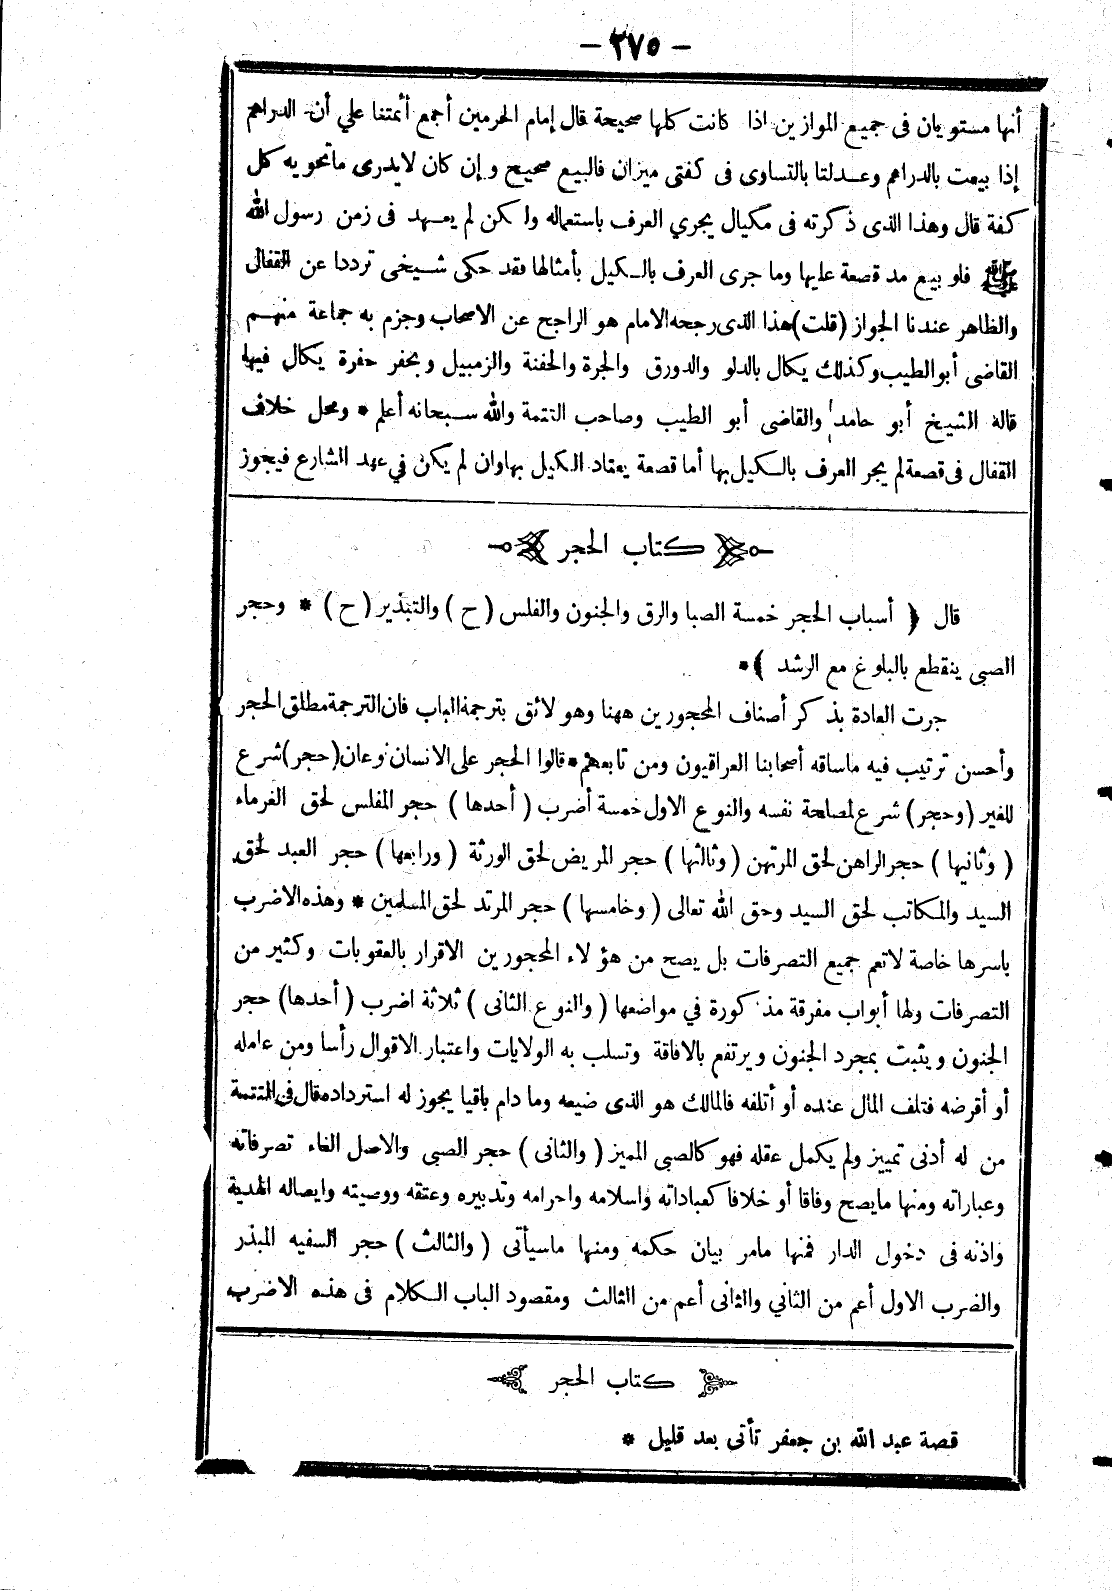 - ٢٧٥ -
أنها مستويان فى جميع الموازين اذا كانت كلها صحيحة قال إمام الحرمين أجمع أئمتنا علي أن الدراهم
إذا بيعت بالدراهم وعدلتا بالتساوى فى كفتى ميزان فالبيع صحيح وإن كان لايدرى ماتحويه كل
كفة قال وهذا الذى ذكرته فى مكيال يجري العرف باستعماله ولكن لم يعهد فى زمن رسول الله
ﷺ فلو بيع مد قصعة عليها وما جرى العرف بالكيل بأمثالها فقد حكى شيخى ترددا عن القفال
والظاهر عندنا الجواز (قلت) هذا الذى رجحه الامام هو الراجح عن الاصحاب وجزم به جماعة منهم
القاضى أبو الطيب وكذلك يكال بالدلو والدورق والجرة والحفنة والزمبيل وبحفر حفرة يكال فيها
قاله الشيخ أبو حامد والقاضى أبو الطيب وصاحب التتمة والله سبحانه أعلم * ومحل خلاف
القفال فى قصعة لم يجر العرف بالكيل بها أما قصعة يعتاد الكيل بها وان لم يكن في عهد الشارع فيجوز
كتاب الحجر
قال ﴿ أسباب الحجر خمسة الصبا والرق والجنون والفلس (ح) والتبذير (ح) * وحجر
الصبى ينقطع بالبلوغ مع الرشد ﴾ *
جرت العادة بذكر أصناف المحجورين ههنا وهو لائق بترجمة الباب فان الترجمة مطلق الحجر
وأحسن ترتيب فيه ماساقه أصحابنا العراقيون ومن تابعهم * قالوا الحجر على الانسان نوعان (حجر) شرع
للغير (وحجر) شرع لمصلحة نفسه والنوع الاول خمسة أضرب (أحدها) حجر المفلس لحق الغرماء
(وثانيها) حجر الراهن لحق المرتهن (وثالثها) حجر المريض لحق الورثة (ورابعها) حجر العبد لحق
السيد والمكاتب لحق السيد وحق الله تعالى (وخامسها) حجر المرتد لحق المسلمين * وهذه الاضرب
باسرها خاصة لاتعم جميع التصرفات بل يصح من هؤلاء المحجورين الاقرار بالعقوبات وكثير من
التصرفات ولها أبواب مفرقة مذكورة في مواضعها (والنوع الثانى) ثلاثة اضرب (أحدها) حجر
الجنون ويثبت بمجرد الجنون ويرتفع بالافاقة وتسلب به الولايات واعتبار الاقوال رأسا ومن عامله
أو أقرضه فتلف المال عنده أو أتلفه فالمالك هو الذى ضيعه وما دام باقيا يجوز له استرداده قال فى التتمة
من له أدنى تمييز ولم يكمل عقله فهو كالصبى المميز (والثانى) حجر الصبى والاصل الغاء تصرفاته
وعباراته ومنها مايصح وفاقا أو خلافا كعباداته واسلامه واحرامه وتدبيره وعتقه ووصيته وايصاله الهدية
واذنه فى دخول الدار فمنها مامر بيان حكمه ومنها ماسيأتى (والثالث) حجر السفيه المبذر
والضرب الاول أعم من الثاني والثانى أعم من الثالث ومقصود الباب الكلام فى هذه الاضرب
كتاب الحجر
قصة عبد الله بن جعفر تأتى بعد قليل *